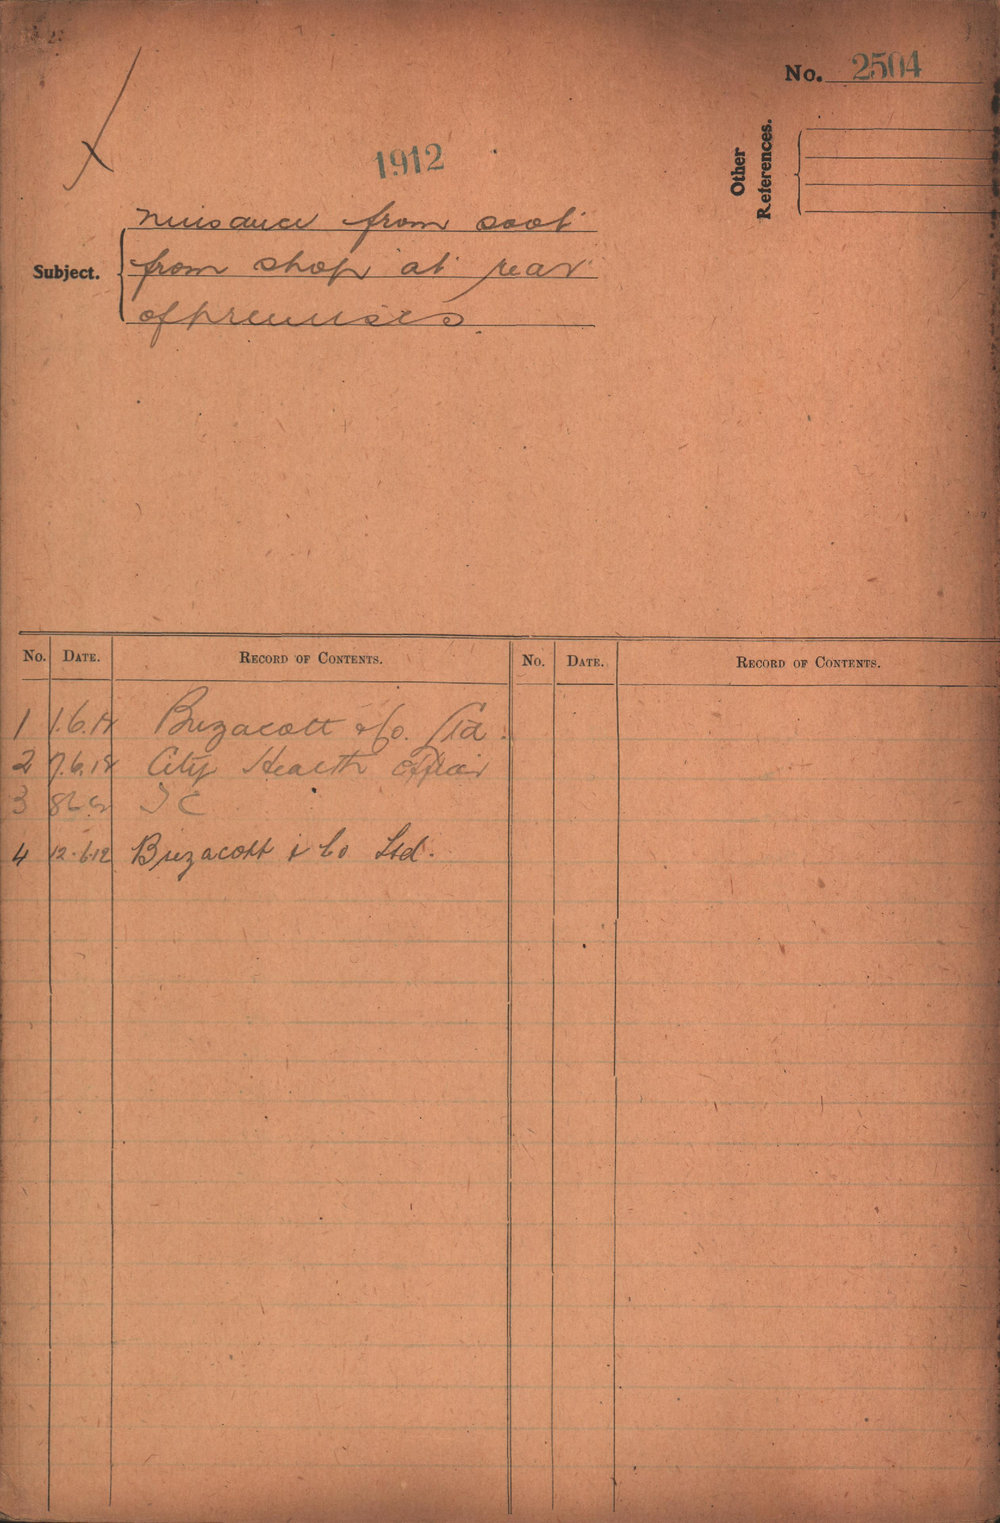 No. 2504
Other
References.
1912
Subject.
nuisance from soot
from shop at rear
of premises
No. DATE. RECORD OF CONTENTS. No. DATE. RECORD OF CONTENTS.
1 1.6.12 Buzacott & Co. Ltd.
2 7.6.12 City Health Officer
3 T C
4 12.6.12 Buzacott & Co Ltd.